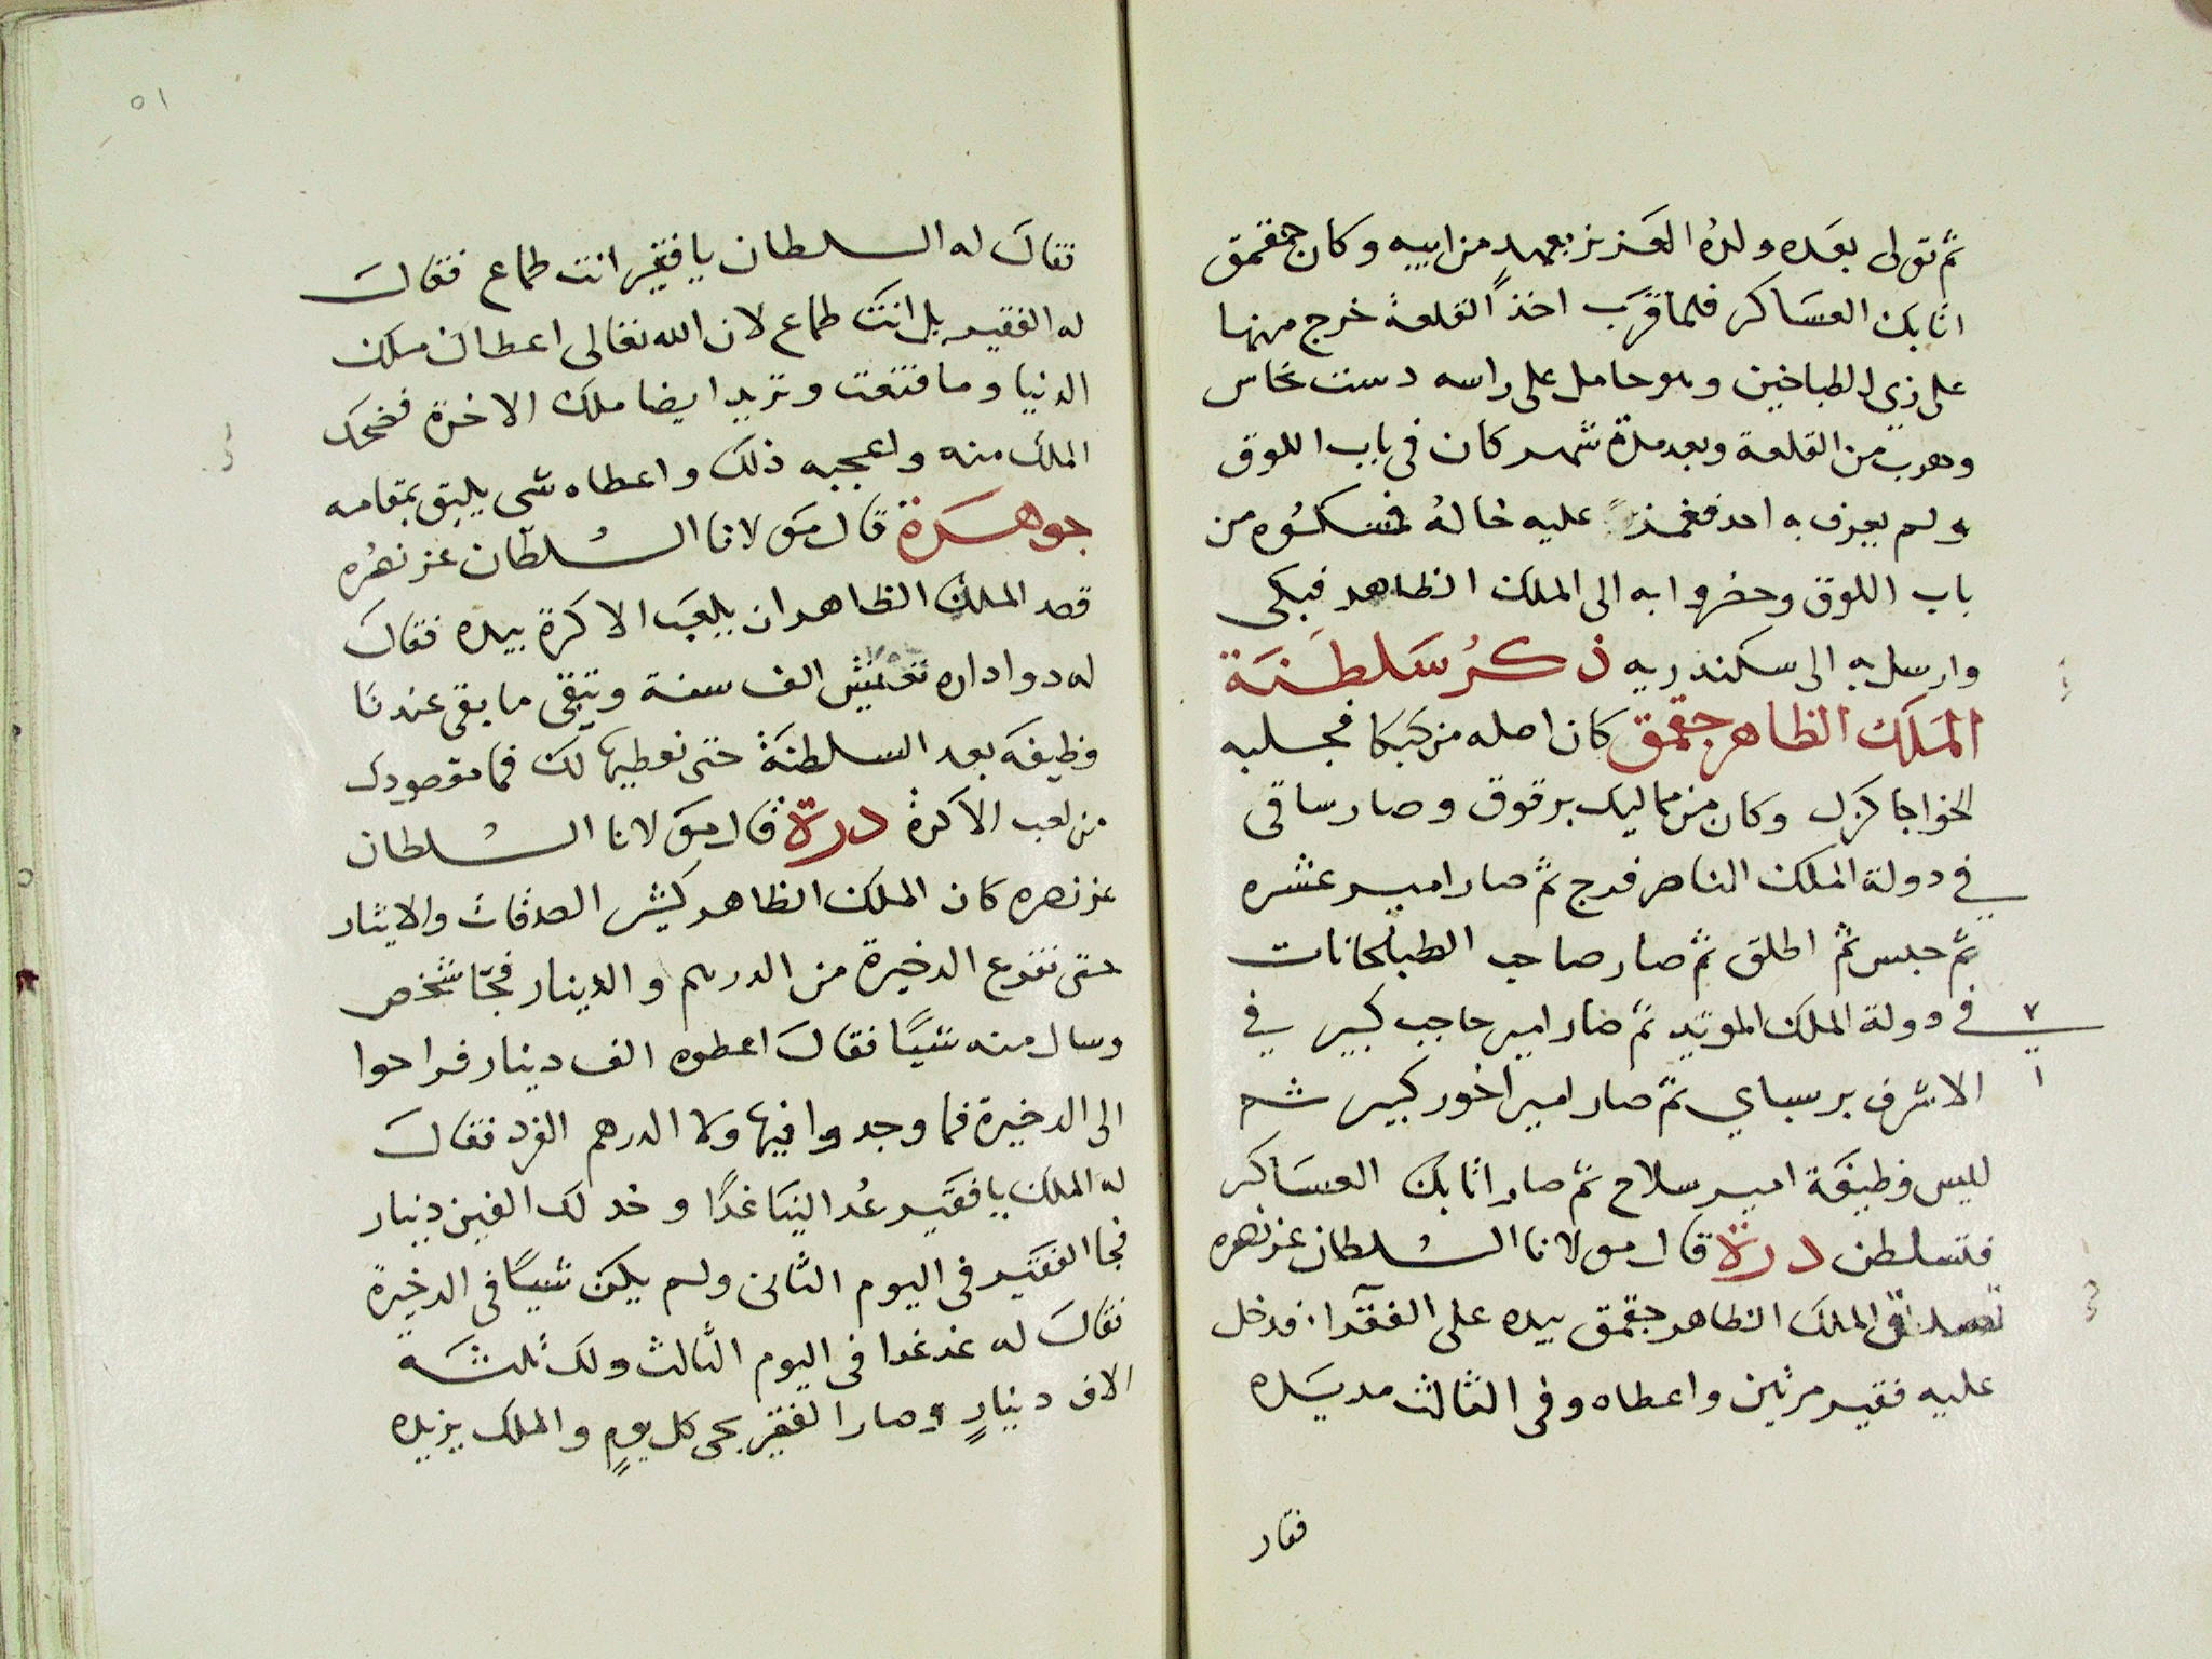 ثم تولى بعده ولده العزيز بعهد من ابيه وكان جقمق
اتابك العساكر فلما قرب اخذ القلعة خرج منها
على زي الطباخين وهو حامل على راسه دست نحاس
وهرب من القلعة وبعد مدة شهر كان في باب اللوق
ولم يعرف به احد فغمز عليه خاله فمسكوه من
باب اللوق وحضروا به الى الملك الظاهر فبكى
وارسل به الى سكندريه ذكر سلطنة
الملك الظاهر جقمق كان اصله من كبكا فجلبه
الخواجا كزل وكان من مماليك برقوق وصار ساقى
في دولة الملك الناصر فرج ثم صار امير عشره
ثم حبس ثم اطلق ثم صار صاحب الطبلخانات
في دولة الملك المويد ثم صار امير حاجب كبير في
الاشرف برسباي ثم صار امير اخور كبير ثم
لبس وظيفة امير سلاح ثم صار اتابك العساكر
فتسلطن درة قال مولانا السلطان عز نصره
تصدق الملك الظاهر جقمق بيده على الفقرآ فدخل
عليه فقير مرتين واعطاه وفى الثالث مد يده
فقال
٥١
فقال له السلطان يا فقير انت طماع فقال
له الفقير بل انت طماع لان الله تعالى اعطاك ملك
الدنيا وما قنعت وتريد ايضا ملك الاخرة فضحك
الملك منه واعجبه ذلك واعطاه شى يليق بمقامه
جوهرة قال مولانا السلطان عز نصره
قصد الملك الظاهر ان يلعب الاكرة بيده فقال
له دواداره تعيش الف سنة وتبقى ما بقى عندنا
وظيفه بعد السلطنة حتى نعطيها لك فما مقصودك
من لعب الاكرة درة قال مولانا السلطان
عز نصره كان الملك الظاهر كثير الصدقات والايثار
حتى تفرغ الدخيرة من الدرهم والدينار فجا شخص
وسال منه شيًا فقال اعطوه الف دينار فراحوا
الى الدخيرة فما وجدوا فيها ولا الدرهم الفرد فقال
له الملك يا فقير عد الينا غدًا وخد لك الفين دينار
فجا الفقير فى اليوم الثانى ولم يكن شيًا فى الدخيرة
فقال له عد غدا فى اليوم الثالث ولك ثلثه
الاف دينار وصار الفقير يجى كل يوم والملك يزيده